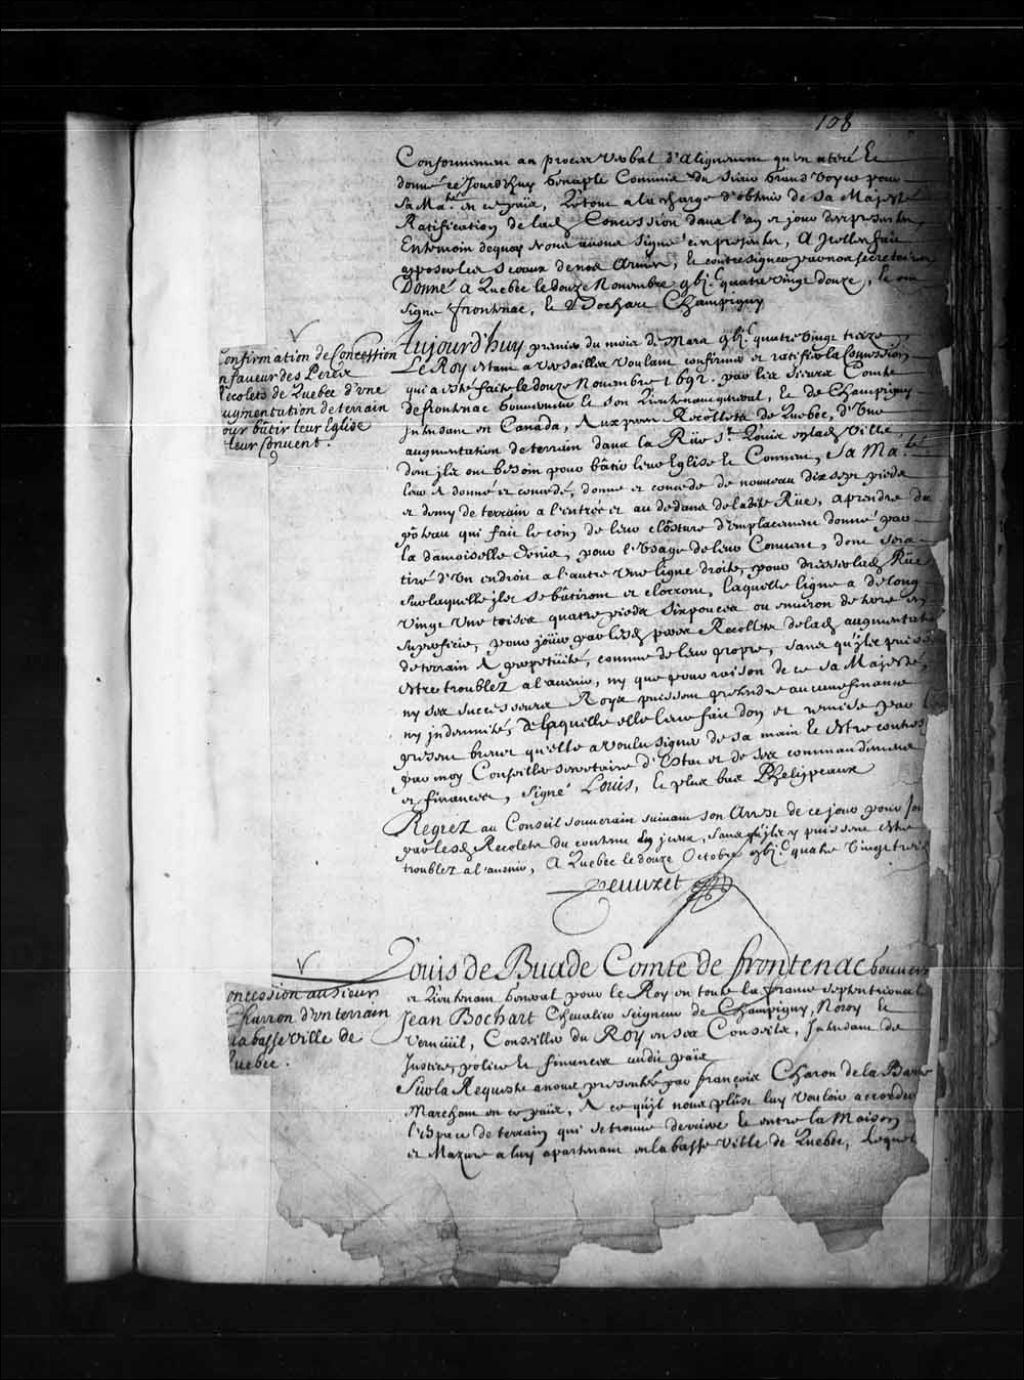 108
Conformement au procez verbal d'alignement qu'en a tiré Et
donné ce Jourd'huy Genaple Commis du Sieur Grand Voyer pour
Sa Maté en ce païs, Le tout a la charge d'obtenir de Sa Majesté
Ratification de lad. Concession dans l'an et jour des presentes,
En temoin dequoy Nous avons Signé ces presentes, A Jcelles fait
apposer les Sceaux de nos Armes, Et contresigner par nos secretaires
Donné a Quebec le douze Novembre gbjc quatre vingt douze,
Signé frontenac, Et Bochart Champigny
Confirmation de Concession
en faveur des Peres
Recolets de Quebec d'vne
augmentation de terrain
pour bâtir leur Eglise
& leur Convent.
Aujourd'huy premier du mois de Mars gbjc quatre vingt treize
Le Roy estant a Versailles voulant confirmer et ratifier la Concession
qui a esté faite le douze Novembre 1692. par les Sieurs Comte
de frontenac Gouverneur Et son Lieutenant general, Et de Champigny
Jntendant en Canada, Aux peres Recollets de Quebec, d'Vne
augmentation de terrain dans la Rüe St Loüis en lad. Ville
dont jls ont besoin pour bâtir leur Eglise Et Convent, Sa Maté
leur A donné et concedé, donne et concede de nouveau dix sept pieds
et demy de terrain a l'entrée et au dedans de ladite Rüe, a prendre du
pôteau qui fait le coin de leur clôsture d'emplacement donné par
la damoiselle Denis, pour l'Vsage de leur Convent, dont sera
tiré d'Vn endroit a l'autre Vne ligne droite, pour dresser lad. Rüe
sur laquelle jls se bâtiront et clorront, laquelle ligne a de long
vingt Vne toises quatre pieds six pouces ou environ de terre en
superficie, pour joüir par lesd. peres Recollets de lad. augmentation
de terrain A perpetüité, comme de leur propre, sans qu'jls puissent
estre troublez a l'avenir, ny que pour raison de ce Sa Majesté,
ny ses successeurs Roys puissent pretendre aucune finance
ny jndemnité, de laquelle elle leur fait don et remise par le
present brevet qu'elle a voulu signer de sa main Et estre contresigné
par moy Conseiller secretaire d'Estat et de ses commandemens
et finances, signé Louis, Et plus bas Phelypeaux
Regrez au Conseil souverain suivant son Arrest de ce jour pour Jouir
par lesd. Recolets du contenu en jceux, sans qu'jls y puissent estre
troublez a l'avenir, A Quebec le douze Octobre gbjc quatre Vingt treize
Peuuret
Concession au Sieur
Charron d'vn terrain
a la basse ville de
Quebec.
Louis de Buade Comte de frontenac Gouverneur
et Lieutenant General pour le Roy en toute la france septentrionale
Jean Bochart Chevalier Seigneur de Champigny, Noroy Et
Verneüil, Conseiller du Roy en ses Conseils, Jntendant de
Justice, police Et finances audit païs
Sur la Requeste a nous presentée par françois Charon de la Barre
Marchant en ce païs, A ce qu'jl nous plûst luy Vouloir accorder
l'Espace de terrain qui se trouve derriere Et entre la Maison
et Mazure a luy apartenant en la basse Ville de Quebec, lequel